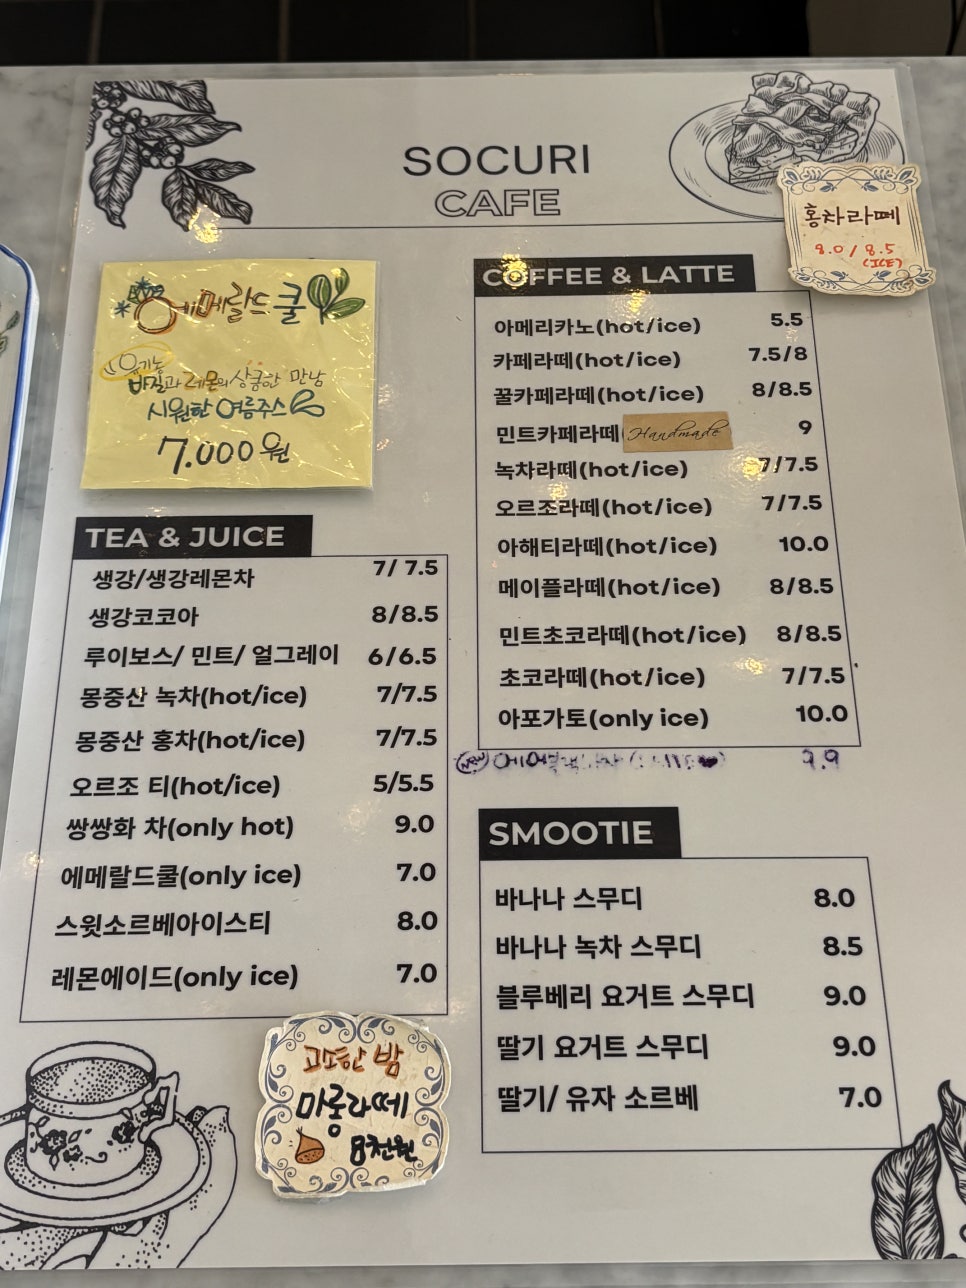 SOCURI
CAFE
홍차라떼
8.0 / 8.5
(ICE)
에메랄드쿨
유기농
바질과 레몬의 상큼한 만남
시원한 여름주스
7.000원
COFFEE & LATTE
아메리카노(hot/ice) 5.5
카페라떼(hot/ice) 7.5/8
꿀카페라떼(hot/ice) 8/8.5
민트카페라떼( Handmade 9
녹차라떼(hot/ice) 7/7.5
오르조라떼(hot/ice) 7/7.5
아해티라떼(hot/ice) 10.0
메이플라떼(hot/ice) 8/8.5
민트초코라떼(hot/ice) 8/8.5
초코라떼(hot/ice) 7/7.5
아포가토(only ice) 10.0
NEW 9.9
TEA & JUICE
생강/생강레몬차 7/ 7.5
생강코코아 8/8.5
루이보스/ 민트/ 얼그레이 6/6.5
몽중산 녹차(hot/ice) 7/7.5
몽중산 홍차(hot/ice) 7/7.5
오르조 티(hot/ice) 5/5.5
쌍쌍화 차(only hot) 9.0
에메랄드쿨(only ice) 7.0
스윗소르베아이스티 8.0
레몬에이드(only ice) 7.0
고소한 밤
마롱라떼
8천원
SMOOTIE
바나나 스무디 8.0
바나나 녹차 스무디 8.5
블루베리 요거트 스무디 9.0
딸기 요거트 스무디 9.0
딸기/ 유자 소르베 7.0